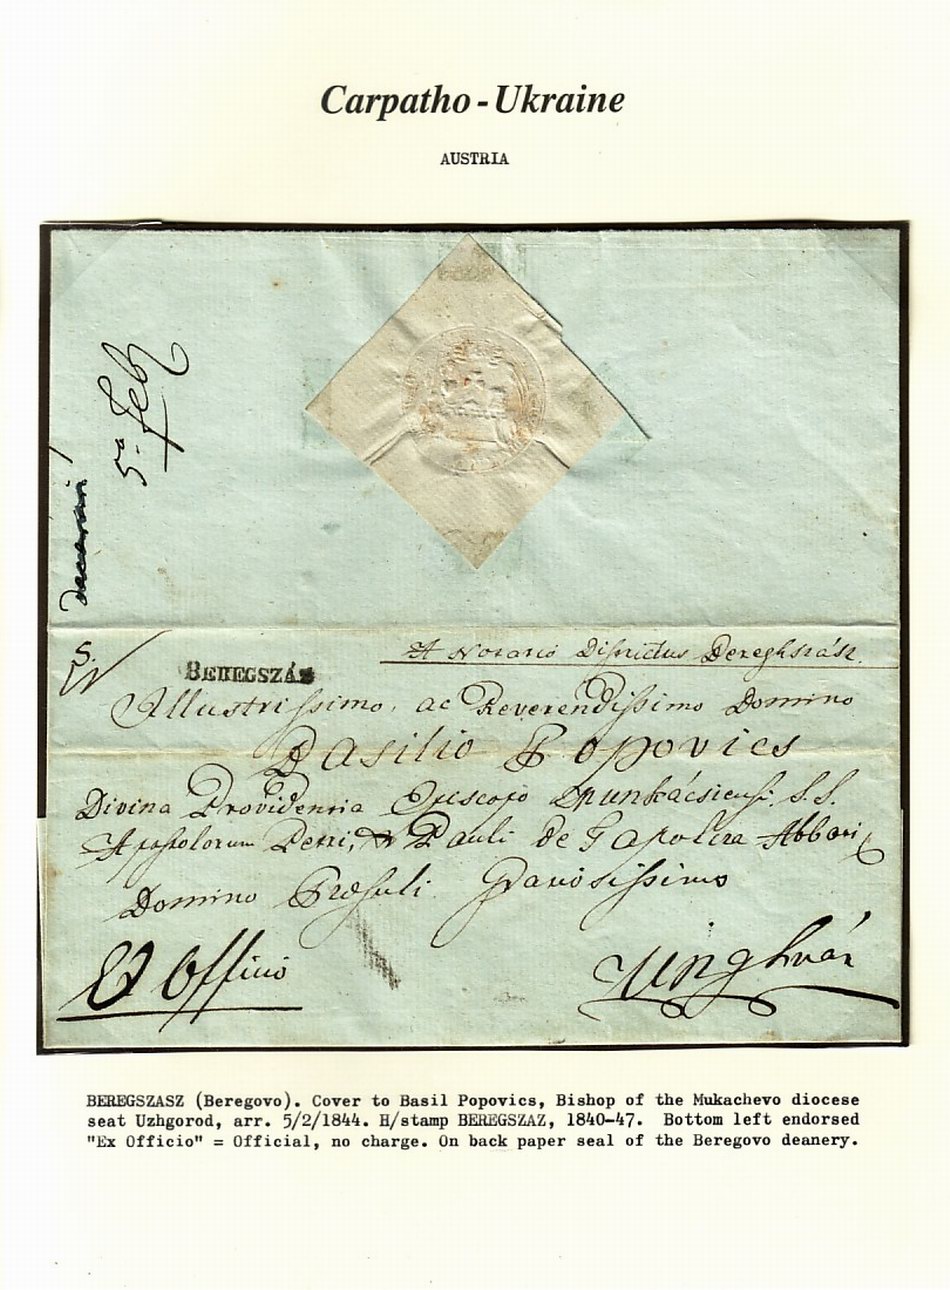 Carpatho-Ukraine
AUSTRIA
5a Feb
S.
BEREGSZÁ
A Notario Districtus Bereghszász.
Illustrissimo, ac Reverendissimo Domino
Basilio Popovics
Divina Providentia Episcopo Munkácsiensi, S.S.
Apostolorum Petri, & Pauli de Tapolcza Abbati,
Domino Præsuli Graviosissimo
Ex Officio
Unghvár
BEREGSZASZ (Beregovo). Cover to Basil Popovics, Bishop of the Mukachevo diocese
seat Uzhgorod, arr. 5/2/1844. H/stamp BEREGSZAZ, 1840-47. Bottom left endorsed
"Ex Officio" = Official, no charge. On back paper seal of the Beregovo deanery.